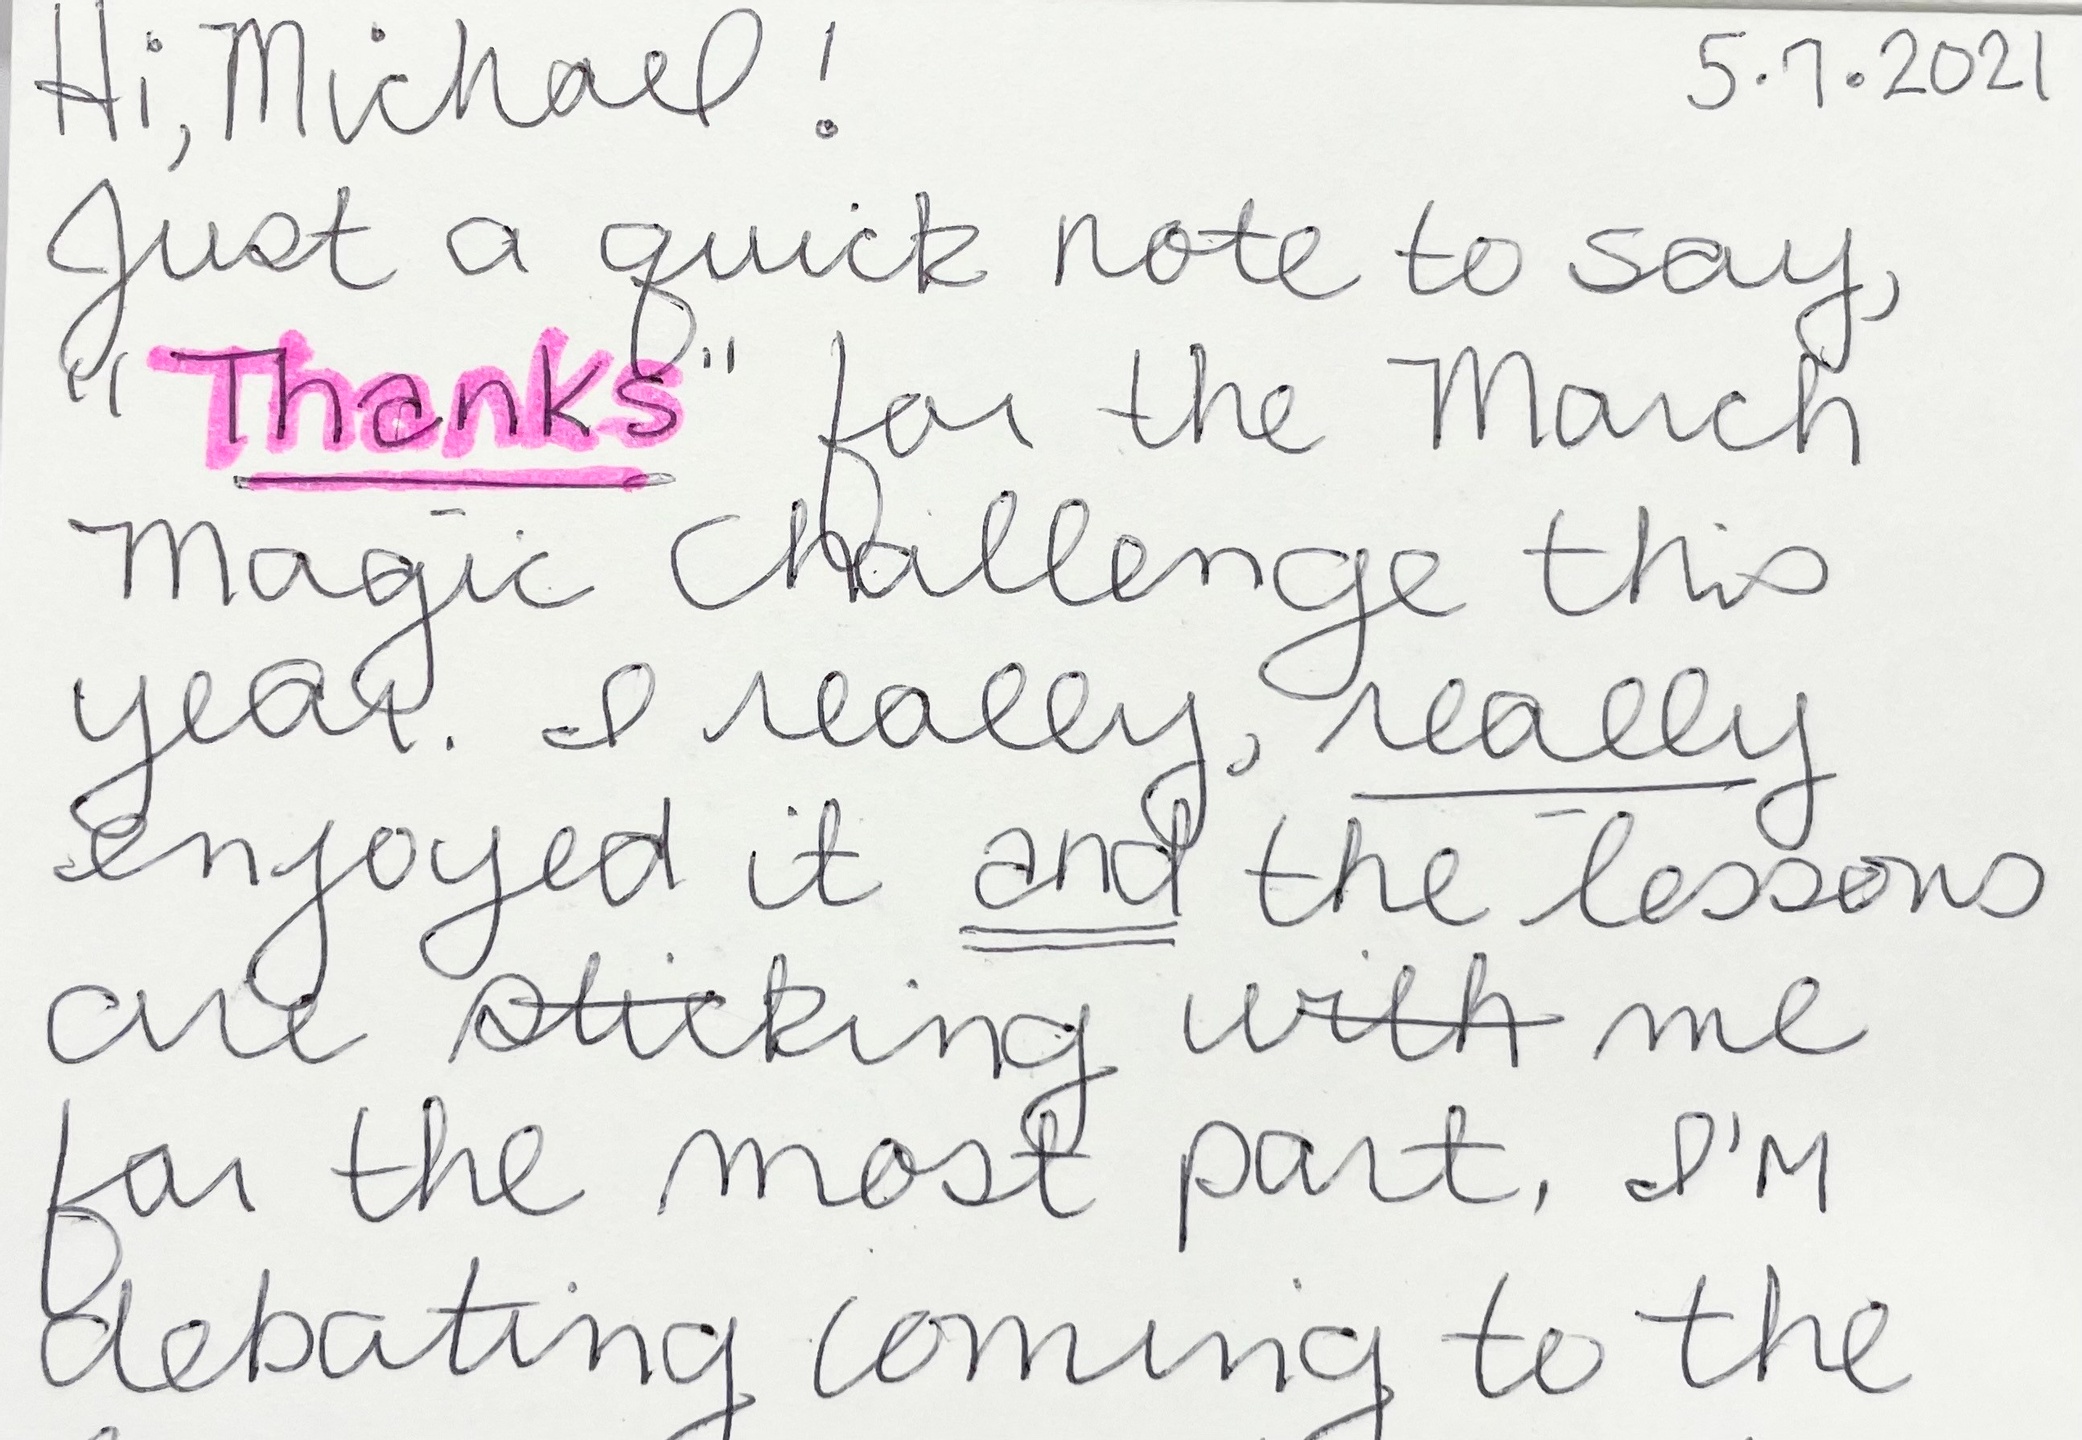 Hi, Michael! 5.7.2021
Just a quick note to say,
"Thanks" for the March
Magic Challenge this
year. I really, really
enjoyed it and the lessons
are sticking with me
for the most part. I'M
debating coming to the